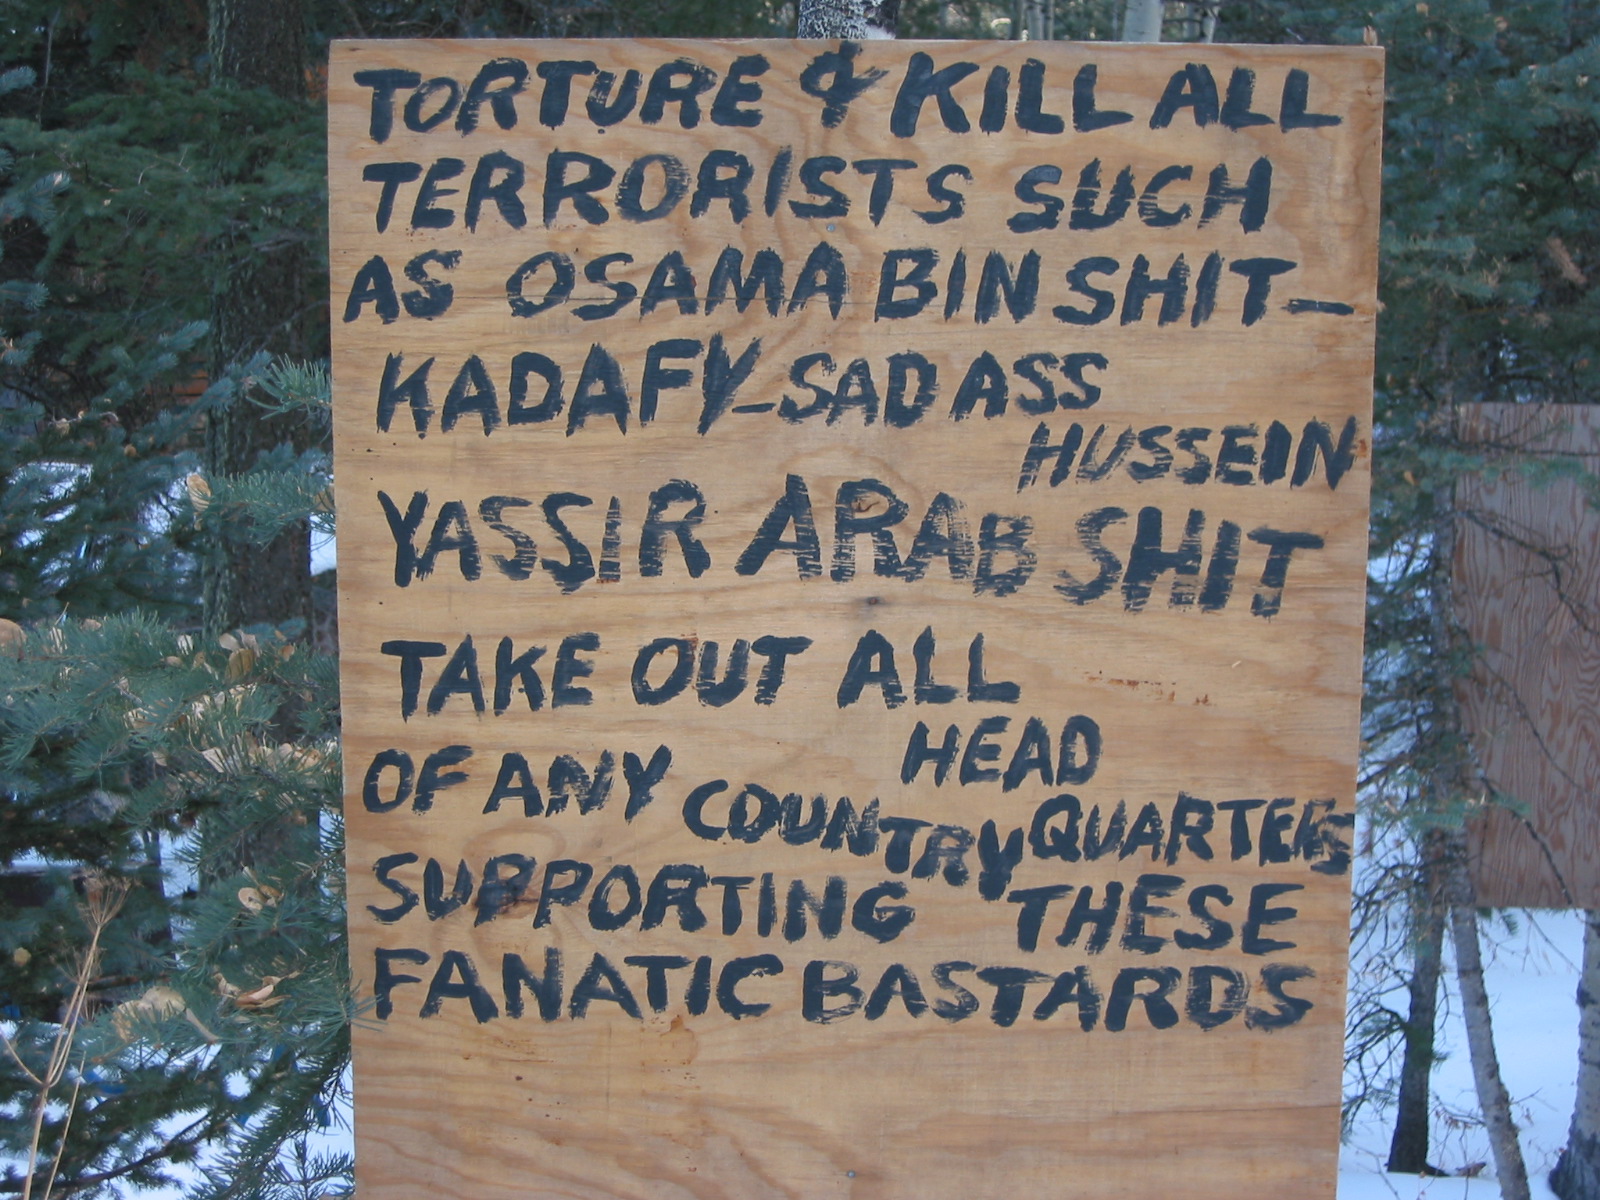 TORTURE & KILL ALL
TERRORISTS SUCH
AS OSAMA BIN SHIT-
KADAFY-SAD ASS
HUSSEIN
YASSIR ARAB SHIT
TAKE OUT ALL
HEAD
QUARTERS
OF ANY COUNTRY
SUPPORTING THESE
FANATIC BASTARDS